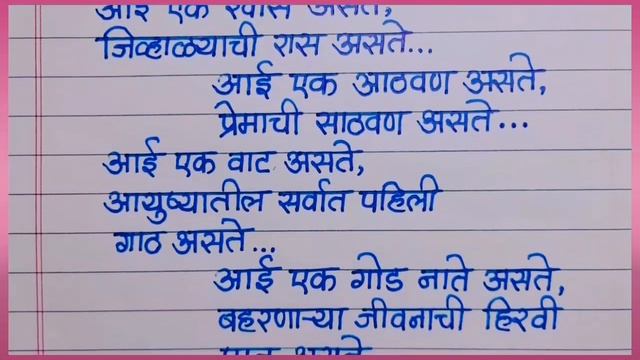 आई एक श्वास असते,
जिव्हाळ्याची रास असते...
आई एक आठवण असते,
प्रेमाची साठवण असते...
आई एक वाट असते,
आयुष्यातील सर्वात पहिली
गाठ असते...
आई एक गोड नाते असते,
बहरणाऱ्या जीवनाची हिरवी
असते